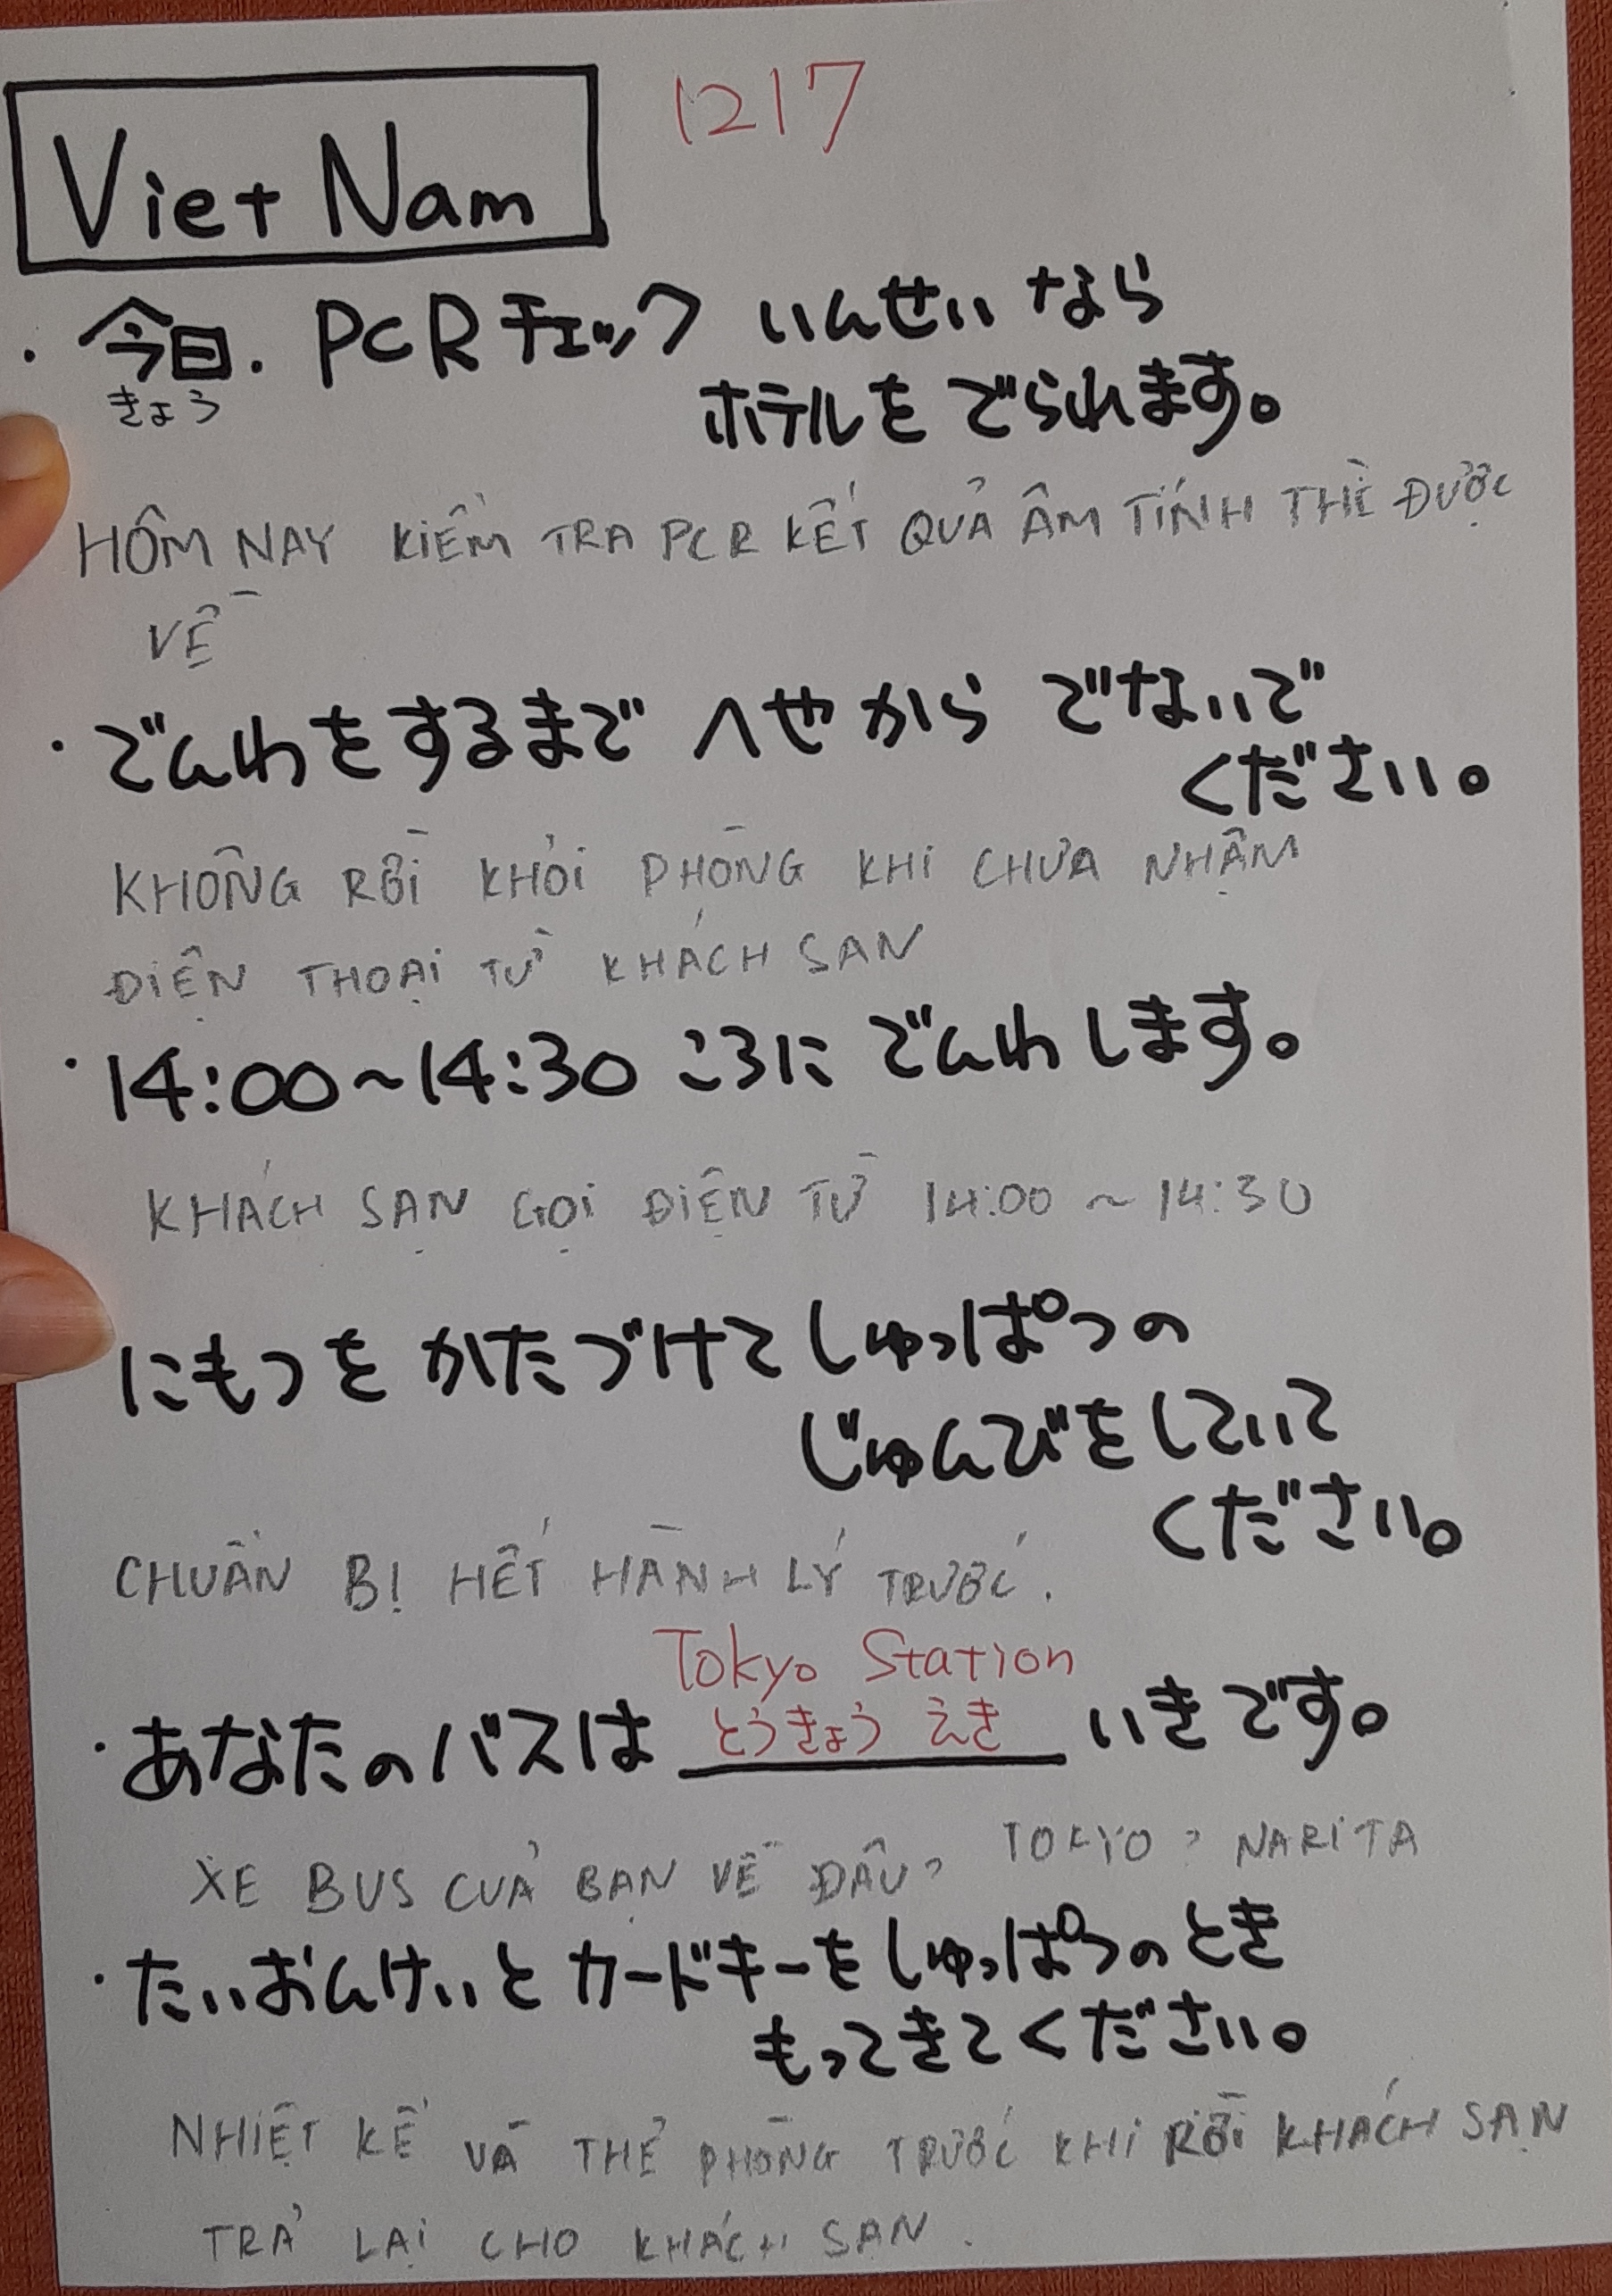 1217
Viet Nam
・今日. PCRチェック いんせいなら
きょう
ホテルをでられます。
HÔM NAY KIỂM TRA PCR KẾT QUẢ ÂM TÍNH THÌ ĐƯỢC
VỀ
・でんわをするまで へやから でないで
ください。
KHÔNG RỜI KHỎI PHÒNG KHI CHƯA NHẬN
ĐIỆN THOẠI TỪ KHÁCH SẠN
・14:00~14:30 ころに でんわします。
KHÁCH SẠN GỌI ĐIỆN TỪ 14:00 ~ 14:30
にもつを かたづけて しゅっぱつの
じゅんびをしていて
ください。
CHUẨN BỊ HẾT HÀNH LÝ TRƯỚC.
Tokyo Station
・あなたのバスは とうきょう えき いきです。
XE BUS CỦA BẠN VỀ ĐÂU? TOKYO? NARITA
・たいおんけいと カードキーを しゅっぱつのとき
もってきてください。
NHIỆT KẾ VÀ THẺ PHÒNG TRƯỚC KHI RỜI KHÁCH SẠN
TRẢ LẠI CHO KHÁCH SẠN.